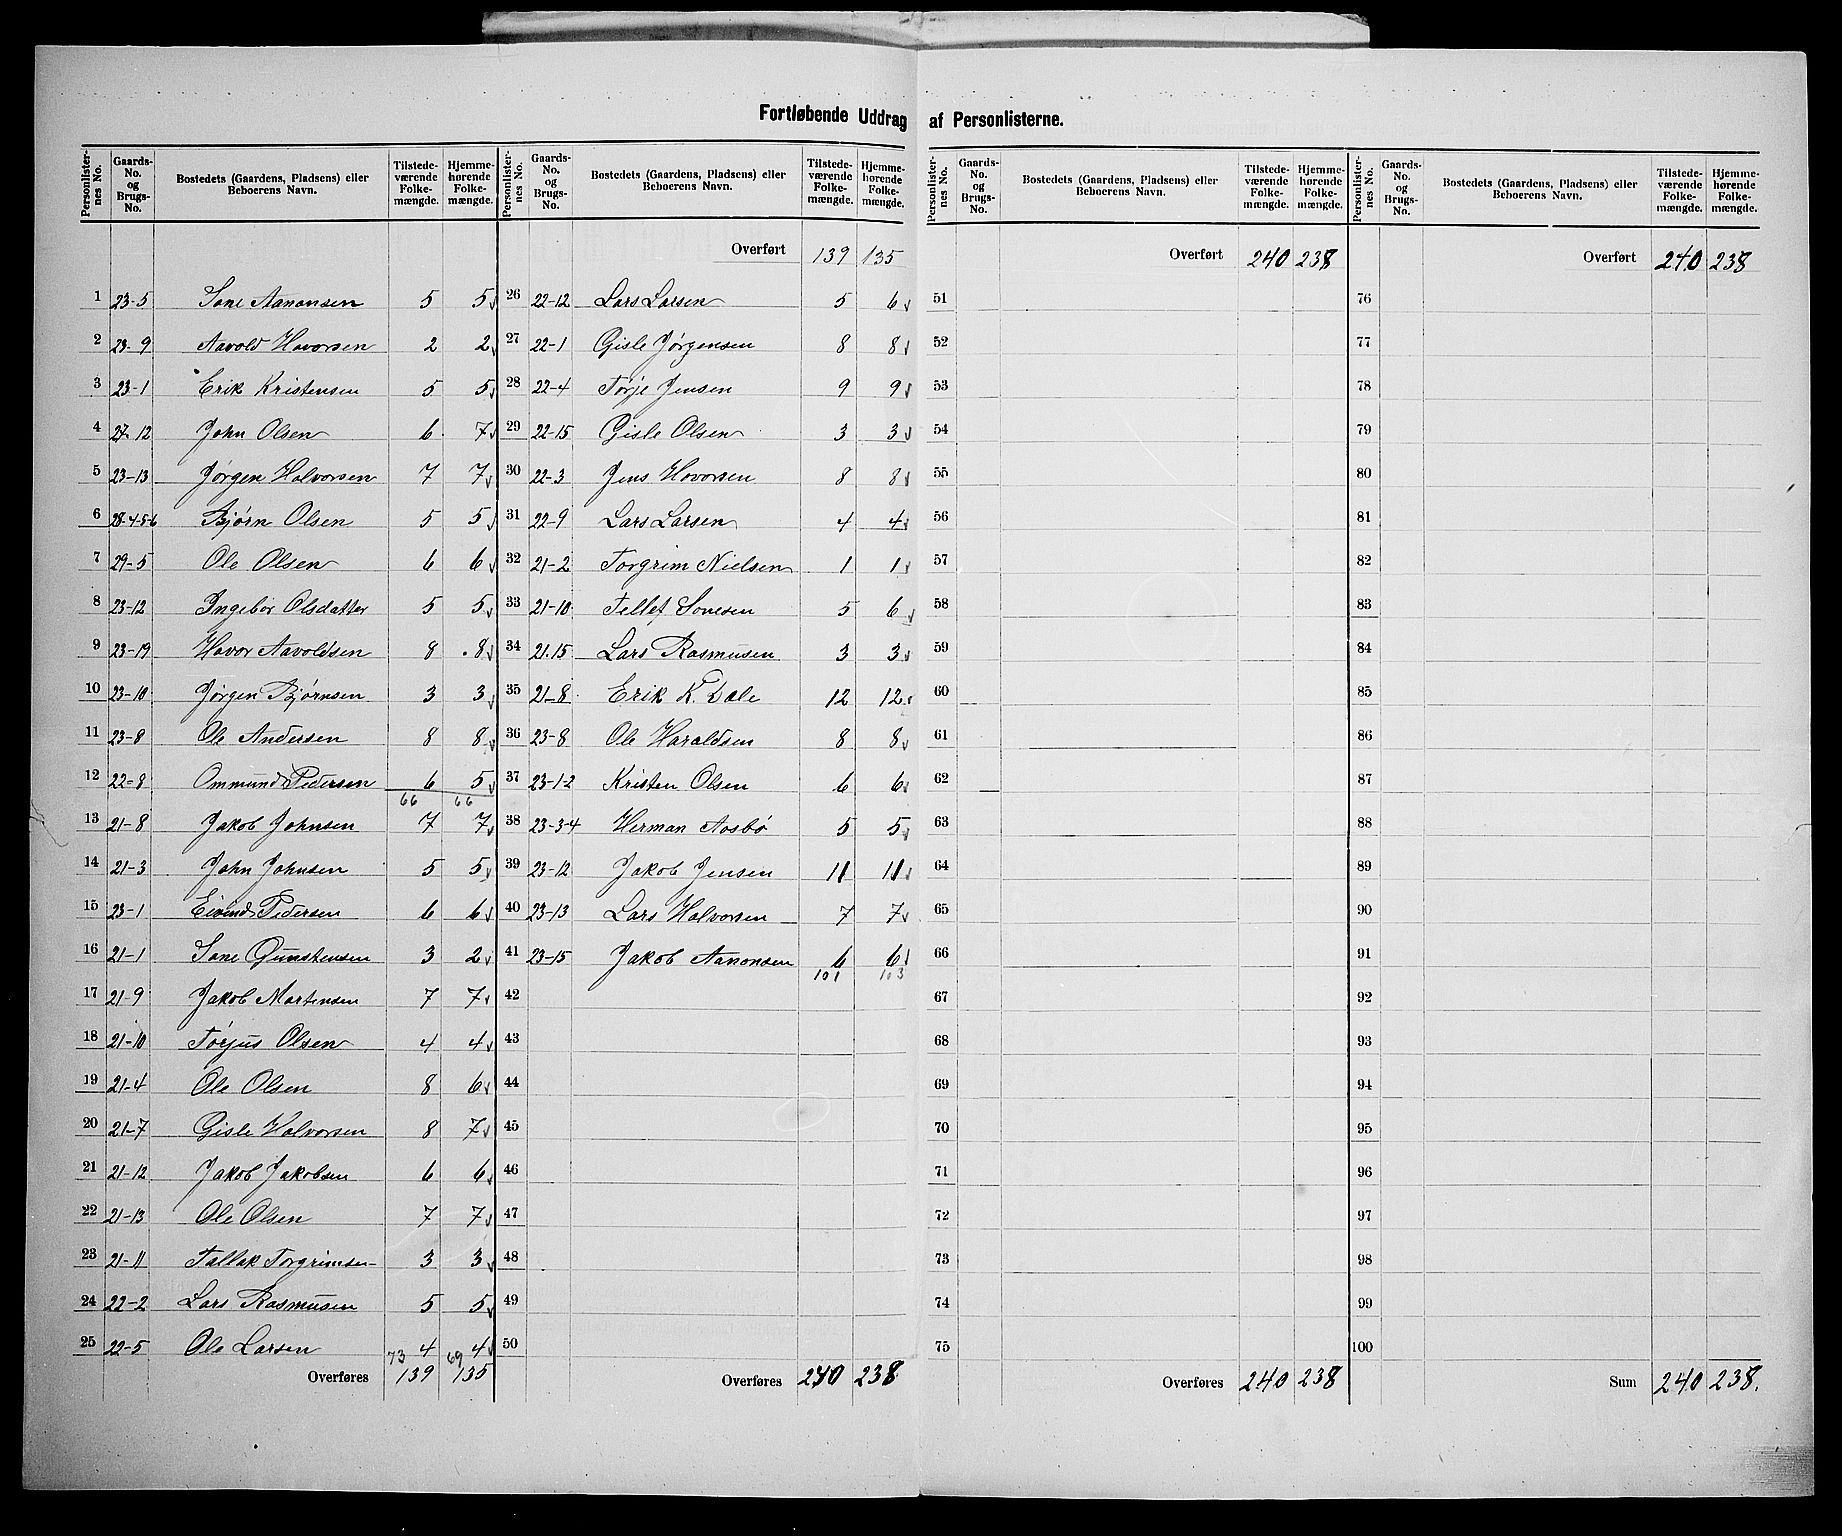 Fortløbende Uddrag af Personlisterne.
Personlister-nes No. Gaards-No. og Brugs-No. Bostedets (Gaardens, Pladsens) eller Beboerens Navn. Tilstede-værende Folke-mængde. Hjemme-hørende Folke-mængde.
1 23-5 Sone Aanonsen 5 5
2 23-9 Aavold Havorsen 2 2
3 23-1 Erik Kristensen 5 5
4 27-12 John Olsen 6 7
5 23-13 Jørgen Halvorsen 7 7
6 28-4-5-6 Bjørn Olsen 5 5
7 29-5 Ole Olsen 6 6
8 23-12 Ingebor Olsdatter 5 5
9 23-19 Havor Aavoldsen 8 8
10 23-10 Jørgen Bjørnsen 3 3
11 23-8 Ole Andersen 8 8
12 22-8 Ommund Pedersen 6 5
66 66
13 21-8 Jakob Johnsen 7 7
14 21-3 John Johnsen 5 5
15 23-1 Eivind Pedersen 6 6
16 21-1 Sone Gunstensen 3 2
17 21-9 Jakob Martensen 7 7
18 21-10 Torjus Olsen 4 4
19 21-4 Ole Olsen 8 6
20 21-7 Gisle Halvorsen 8 7
21 21-12 Jakob Jakobsen 6 6
22 21-13 Ole Olsen 7 7
23 21-11 Tallak Torgrimsen 3 3
24 22-2 Lars Rasmusen 5 5
25 22-5 Ole Larsen 4 4
73 69
Overføres 139 135
Personlister-nes No. Gaards-No. og Brugs-No. Bostedets (Gaardens, Pladsens) eller Beboerens Navn. Tilstede-værende Folke-mængde. Hjemme-hørende Folke-mængde.
Overført 139 135
26 22-12 Lars Larsen 5 6
27 22-1 Gisle Jørgensen 8 8
28 22-4 Torje Jensen 9 9
29 22-15 Gisle Olsen 3 3
30 22-3 Jens Hovorsen 8 8
31 22-9 Lars Larsen 4 4
32 21-2 Torgrim Nielsen 1 1
33 21-10 Tellef Sonesen 5 6
34 21.15 Lars Rasmusen 3 3
35 21-8 Erik K. Dale 12 12
36 23-8 Ole Haraldsen 8 8
37 23-1-2 Kristen Olsen 6 6
38 23-3-4 Herman Aosbø 5 5
39 23-12 Jakob Jensen 11 11
40 23-13 Lars Halvorsen 7 7
41 23-15 Jakob Aanonsen 6 6
101 103
42
43
44
45
46
47
48
49
50
Overføres 240 238
Personlister-nes No. Gaards-No. og Brugs-No. Bostedets (Gaardens, Pladsens) eller Beboerens Navn. Tilstede-værende Folke-mængde. Hjemme-hørende Folke-mængde.
Overført 240 238
51
52
53
54
55
56
57
58
59
60
61
62
63
64
65
66
67
68
69
70
71
72
73
74
75
Overføres 240 238
Personlister-nes No. Gaards-No. og Brugs-No. Bostedets (Gaardens, Pladsens) eller Beboerens Navn. Tilstede-værende Folke-mængde. Hjemme-hørende Folke-mængde.
Overført 240 238
76
77
78
79
80
81
82
83
84
85
86
87
88
89
90
91
92
93
94
95
96
97
98
99
100
Sum 240 238.